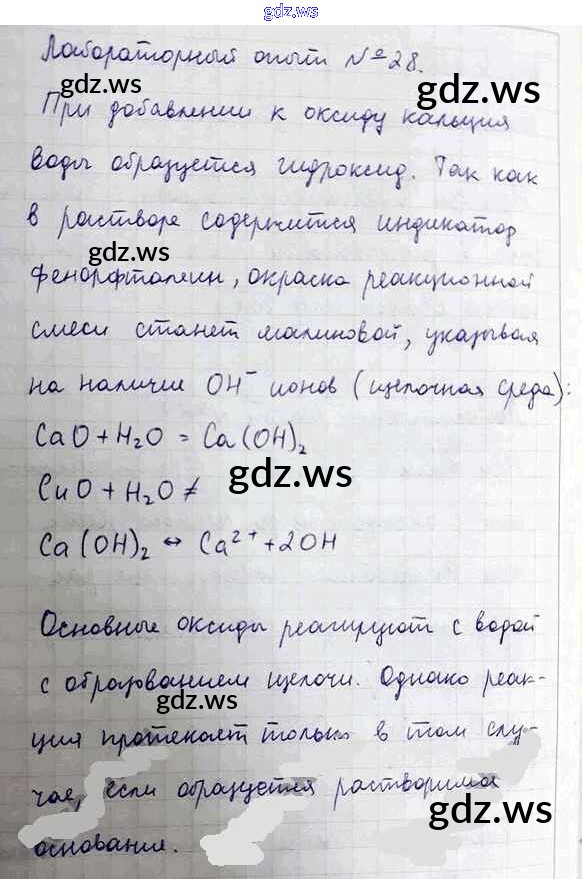 gdz.ws
Лабораторный опыт №28.
gdz.ws
gdz.ws
При добавлении к оксиду кальция
воды образуется гидроксид. Так как
в растворе содержится индикатор
gdz.ws
фенолфталеин, окраска реакционной
смеси станет малиновой, указывая
на наличие OH⁻ ионов (щелочная среда):
CaO + H₂O = Ca(OH)₂
gdz.ws
CuO + H₂O ≠
Ca(OH)₂ ↔ Ca²⁺ + 2OH
Основные оксиды реагируют с водой
с образованием щелочи. Однако реак-
gdz.ws
ция протекает только в том слу-
чае, если образуется растворимое
gdz.ws
основание.
gdz.ws